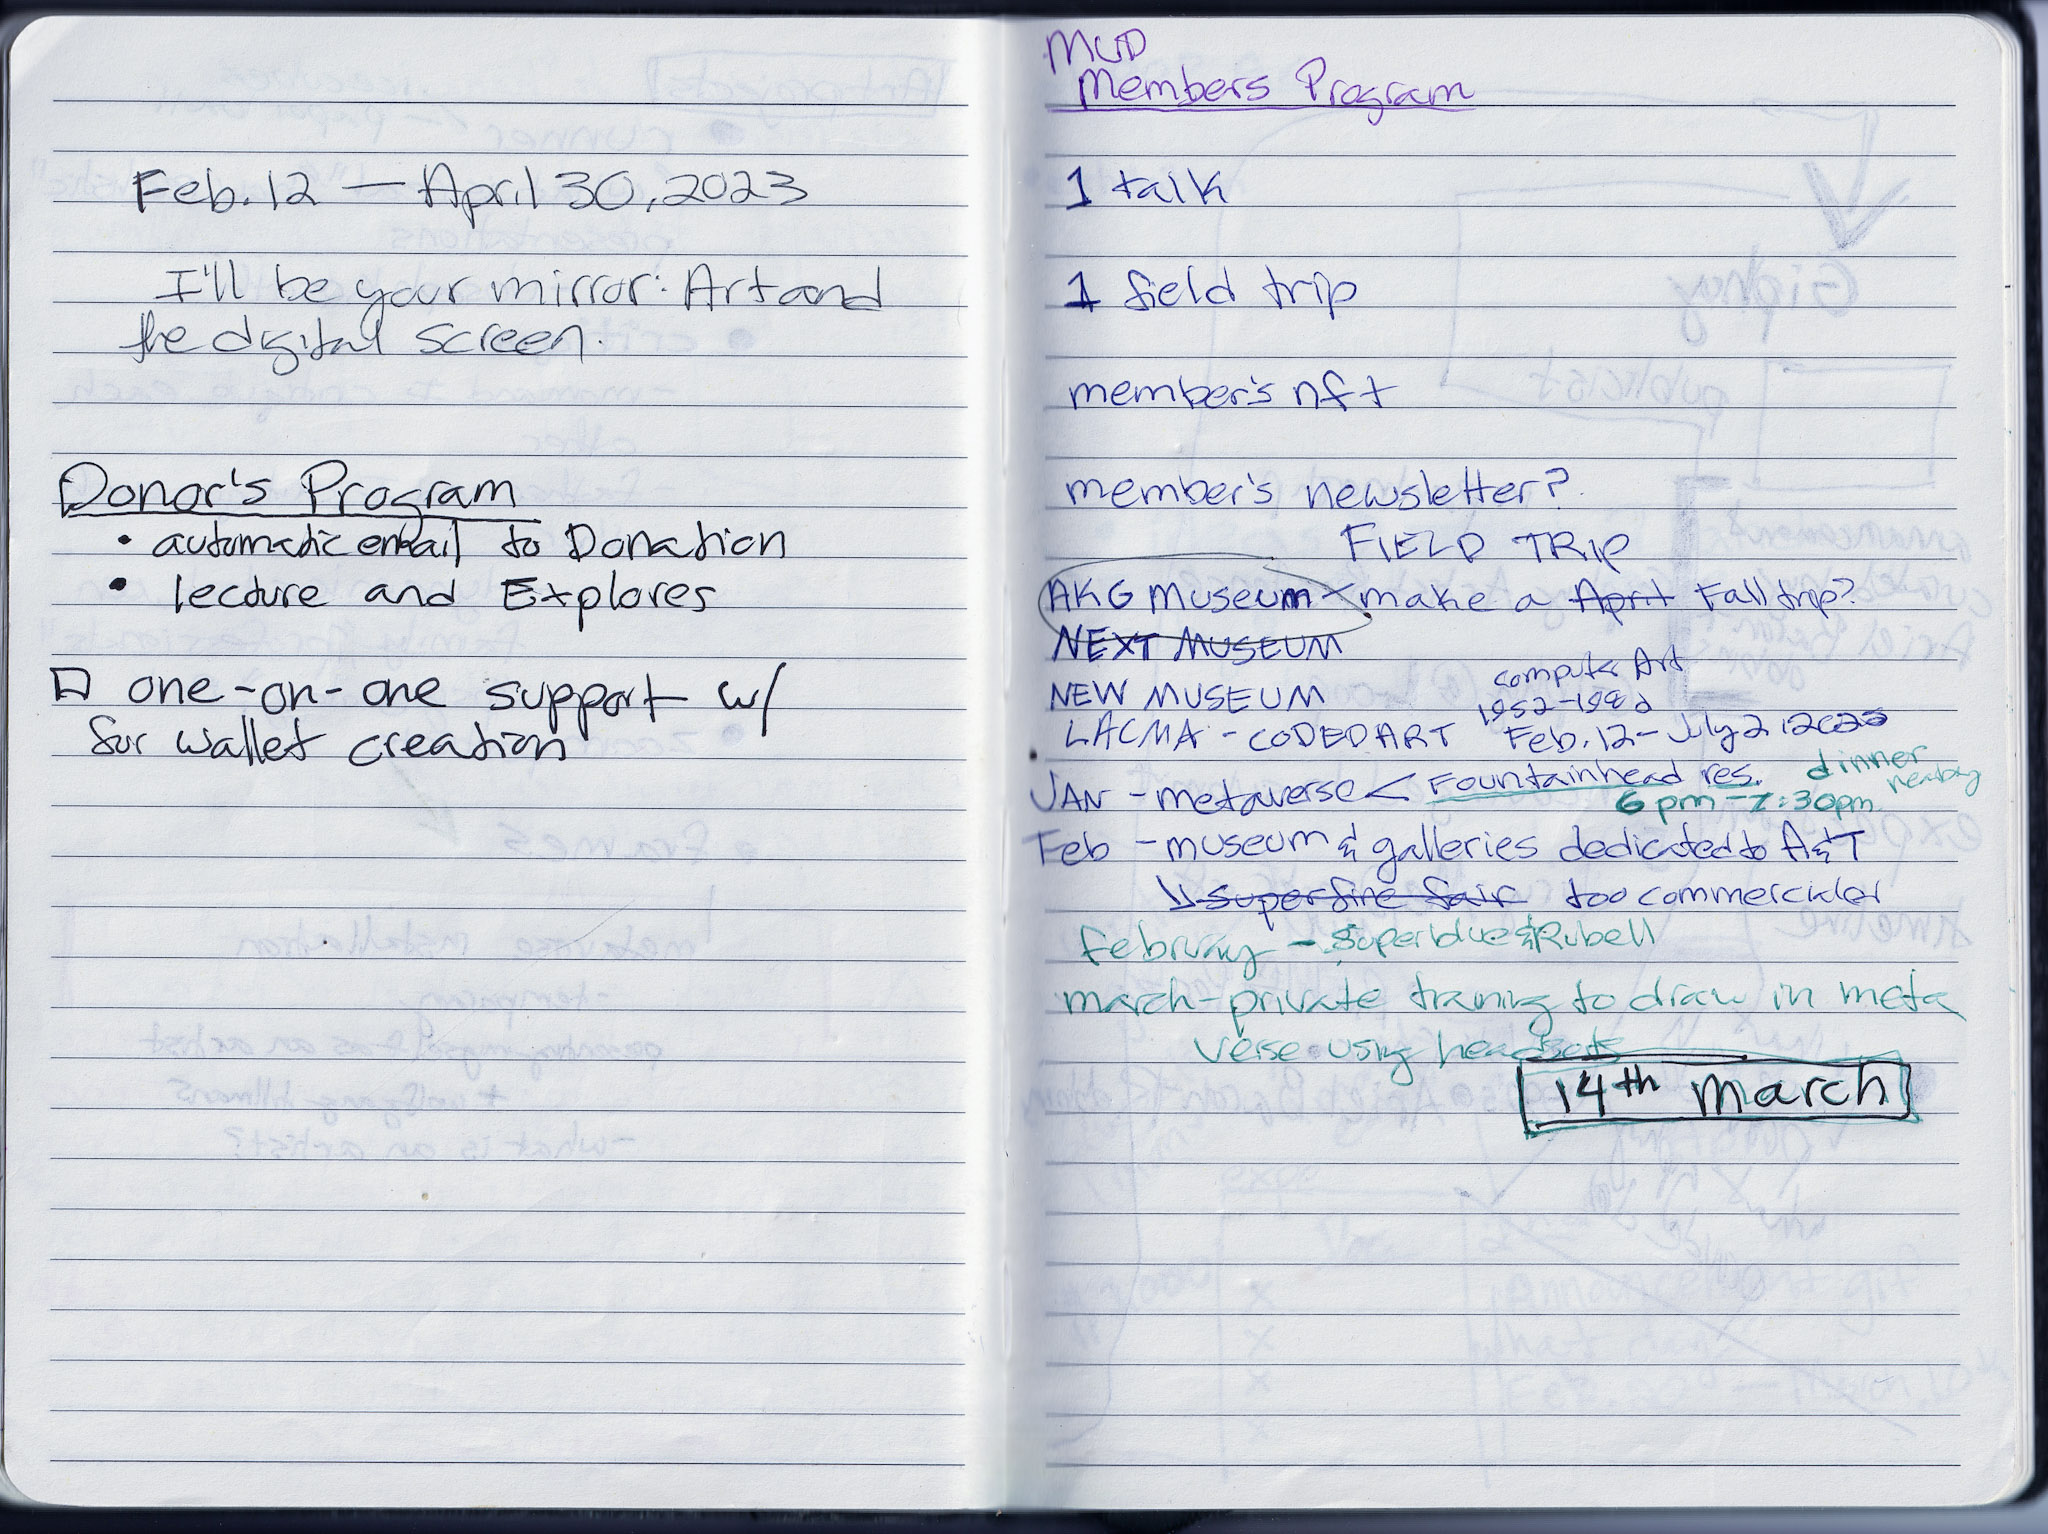 Feb. 12 — April 30, 2023
I'll be your mirror: Art and
the digital screen.
Donor's Program
• automatic email to Donation
• lecture and Explores
one-on-one support w/
for wallet creation
MUD
Members Program
1 talk
1 field trip
member's nft
member's newsletter?
FIELD TRIP
AKG Museum make a April Fall trip?
NEXT MUSEUM
NEW MUSEUM
computer Art
1952-1982
LACMA - CODED ART Feb. 12 - July 2
JAN - metaverse < Fountainhead res. dinner nearby
6pm - 7:30pm
Feb - museum & galleries dedicated to A&T
superfine fair too commercialer
february - Superblue & Rubell
march - private training to draw in meta
verse using headsets
14th march